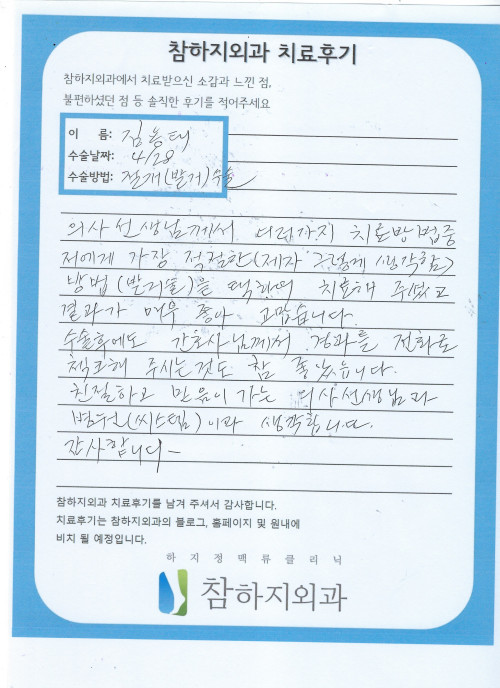 참하지외과 치료후기
참하지외과에서 치료받으신 소감과 느낀 점,
불편하셨던 점 등 솔직한 후기를 적어주세요
이 름: 김용태
수술날짜: 4/28
수술방법: 절개(발거)수술
의사선생님께서 여러가지 치료방법중
저에게 가장 적절한(제가 그렇게 생각함)
방법(발거술)을 택하여 치료해 주셨고
결과가 매우 좋아 고맙습니다.
수술후에도 간호사님께서 경과를 전화로
체크해 주시는것도 참 좋았습니다.
친절하고 믿음이 가는 의사선생님과
병원(씨스템)이라 생각합니다.
감사합니다-
참하지외과 치료후기를 남겨 주셔서 감사합니다.
치료후기는 참하지외과의 블로그, 홈페이지 및 원내에
비치 될 예정입니다.
하지정맥류클리닉
참하지외과